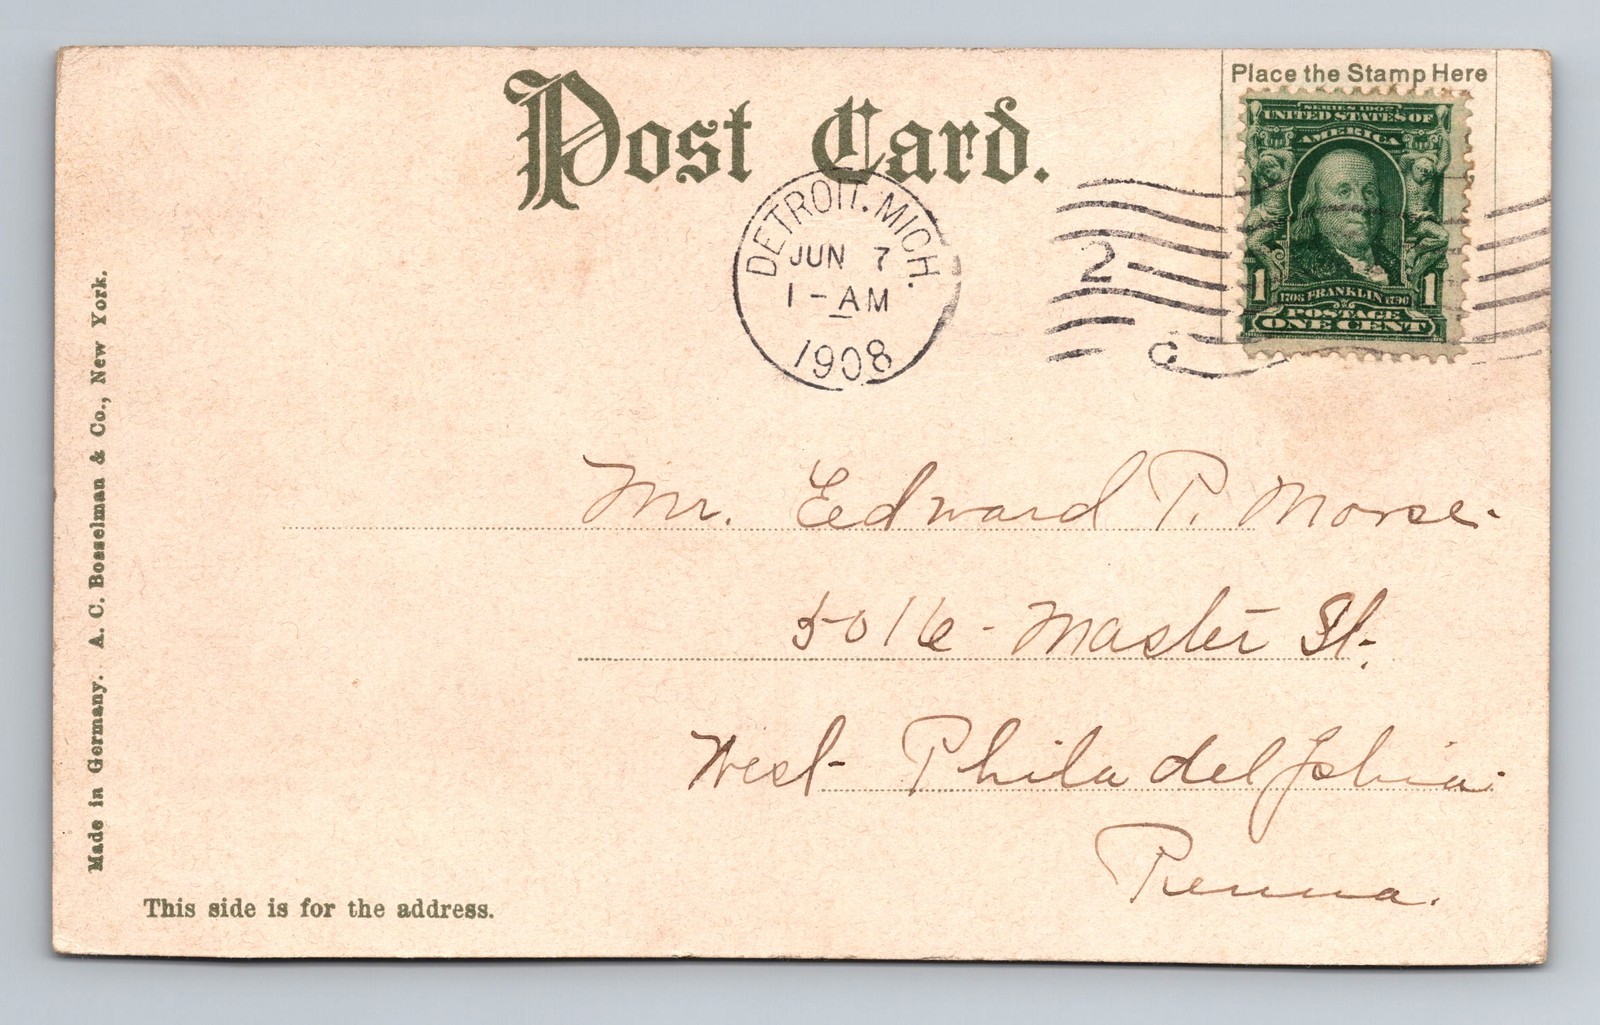 Post Card.
Place the Stamp Here
SERIES 1902
UNITED STATES OF
AMERICA
1 1706 FRANKLIN 1790 1
POSTAGE
ONE CENT
DETROIT, MICH.
JUN 7
1-AM
1908
2
C
Mr. Edward P. Morse.
5016- Master St.
West Philadelphia.
Penna.
Made in Germany. A. C. Bosselman & Co., New York.
This side is for the address.